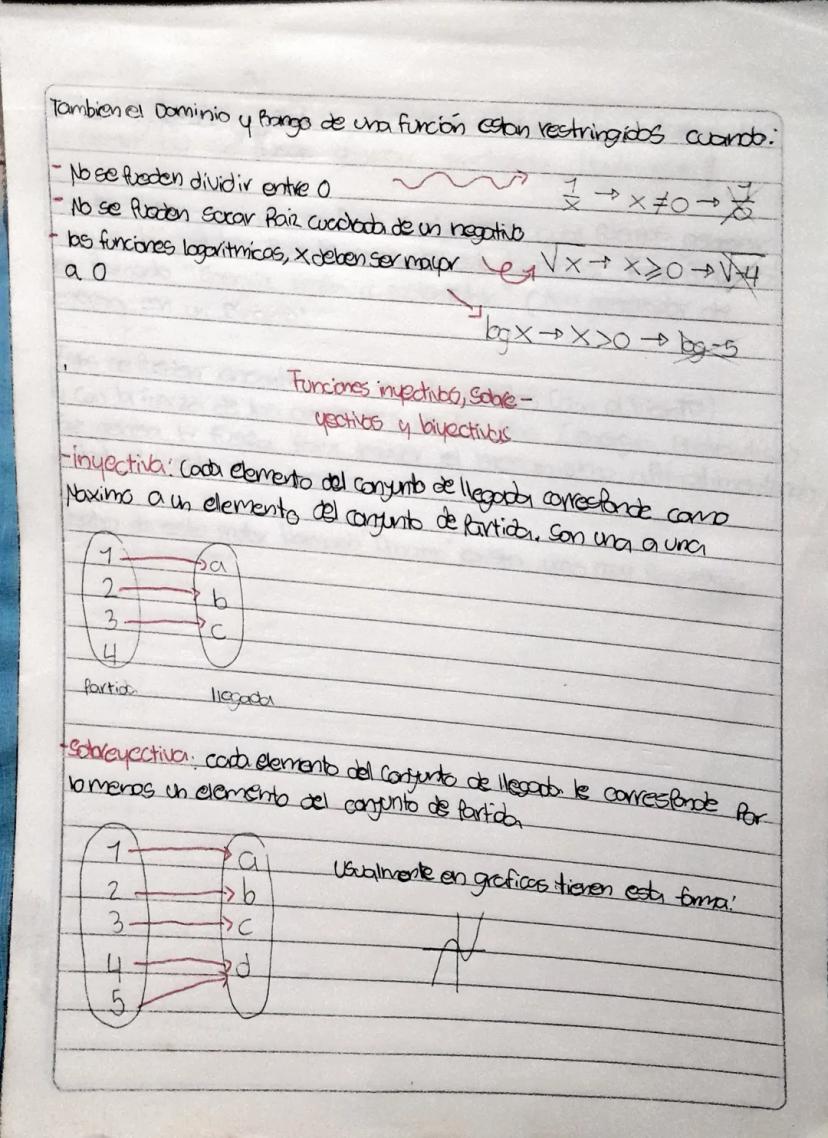 Tambien el Dominio y Rango de una función estan restringidos cuando:
- No se pueden dividir entre 0 1/x → x ≠ 0 → 1/0
- No se pueden sacar Raiz cuadrada de un negativo
- las funciones logaritmicas, x deben ser mayor √x → x ≥ 0 → √-4
a 0
log x → x > 0 → log -5
Funciones inyectivas, sobre-
yectivas y biyectivas
- inyectiva: Cada elemento del conjunto de llegada corresponde como
Maximo a un elemento del conjunto de Partida. Son una a una
1 a
2 b
3 c
4
Partida llegada
- Sobreyectiva: cada elemento del conjunto de llegada le corresponde Por
lo menos un elemento del conjunto de Partida
1 a
Usualmente en graficas tienen esta forma:
2 b
3 c
4 d
5